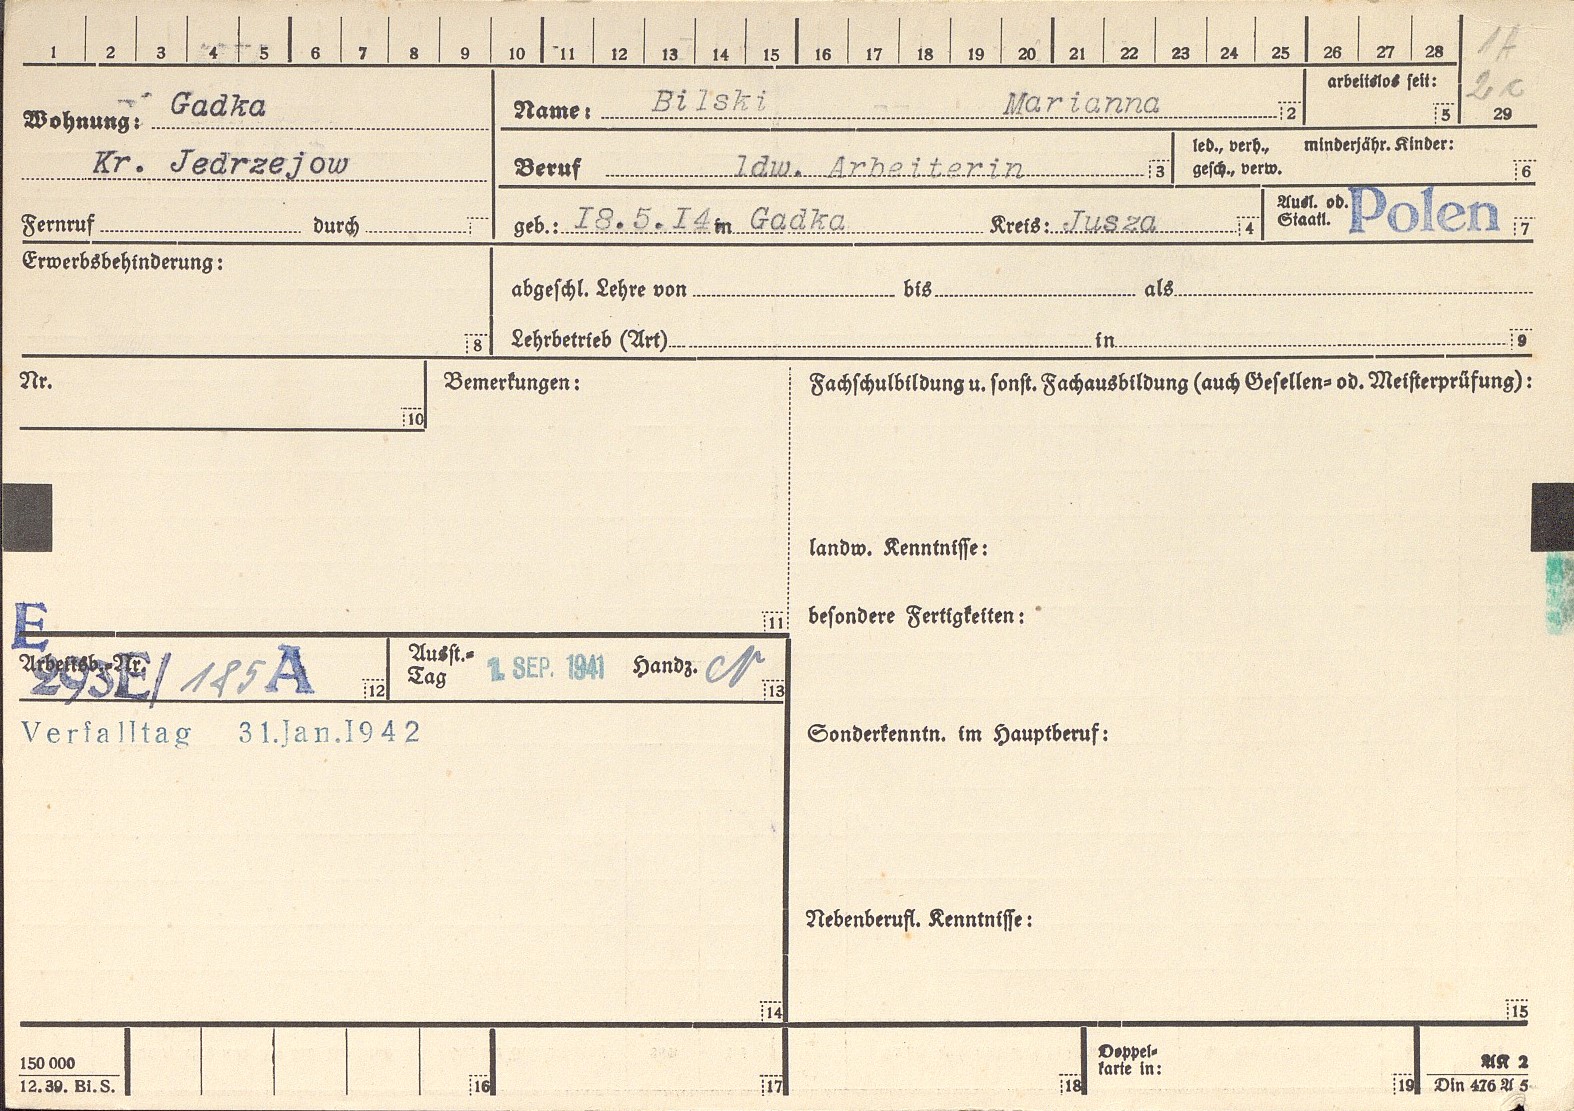 1 2 3 4 5 6 7 8 9 10 11 12 13 14 15 16 17 18 19 20 21 22 23 24 25 26 27 28
1A
2c
29
Wohnung: Gadka
Kr. Jedrzejow
Name: Bilski Marianna 2
arbeitslos seit: 5
Beruf ldw. Arbeiterin 3
led., verh., minderjähr. Kinder:
gesch., verw. 6
Fernruf durch
geb.: I8.5.I4 in Gadka Kreis: Jusza 4
Ausl. od. Staatl. Polen 7
Erwerbsbehinderung: 8
abgeschl. Lehre von bis als
Lehrbetrieb (Art) in 9
Nr. 10
Bemerkungen: 11
Fachschulbildung u. sonst. Fachausbildung (auch Gesellen- od. Meisterprüfung):
landw. Kenntnisse:
besondere Fertigkeiten:
E
Arbeitsb.-Nr. 293E/ 185 A 12
Ausst.-Tag 1. SEP. 1941 Handz. 13
Verfalltag 31.Jan.1942
Sonderkenntn. im Hauptberuf:
Nebenberufl. Kenntnisse:
14
15
150 000
12.39. Bl.S.
16
17
18
Doppel-
karte in: 19
AK 2
Din 476 A 5